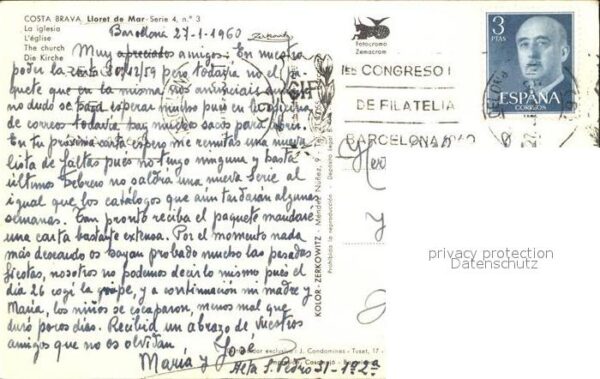 COSTA BRAVA Lloret de Mar - Serie 4, n.º 3
La iglesia
L'église
The church
Die Kirche
Zerkowitz
Fotocromo
Zemacrom
Barcelona 27-1-1960
Muy apreciados amigos: En nuestro
poder la carta 20/12/59 pero todavía no el pa-
quete que en la misma nos anunciais que
no dudo se hará esperar mucho pues en la oficina
de correos todavía hay muchos sacos para abrir.
En tu próxima carta espero me remitas una nueva
lista de faltas pues no tengo ninguna y hasta
últimos febrero no saldrá una nueva serie al
igual que los catálogos que aún tardarán algunas
semanas. Tan pronto reciba el paquete mandaré
una carta bastante extensa. Por el momento nada
más deseando os hayan probado mucho las pasadas
fiestas, nosotros no podemos decir lo mismo pues el
día 26 cogí la gripe, y a continuación mi madre y
María, los niños se escaparon, menos mal que
duró pocos días. Recibid un abrazo de vuestros
amigos que no os olvidan
María y José
Alta S. Pedro 31-1º2ª
KOLOR-ZERKOWITZ - Méndez Núñez, 9
Prohibida la reproducción - Depósito legal
exclusivo: J. Condominas - Tuset, 17 -
3
PTAS
ESPAÑA
CONGRESO I
DE FILATELIA
BARCELONA 1960
privacy protection
Datenschutz